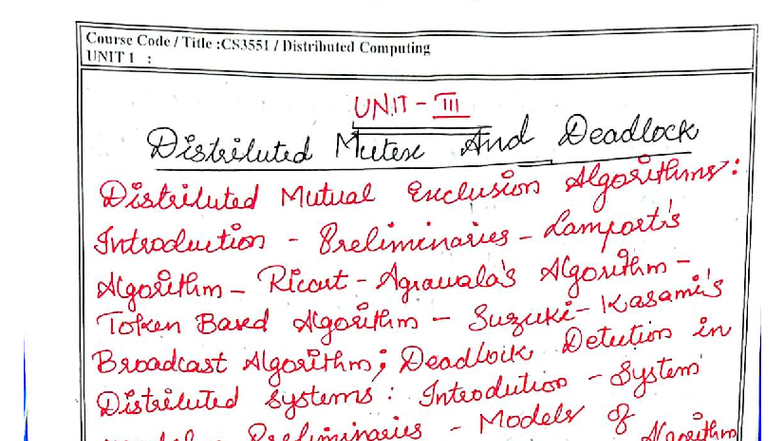 Course Code / Title :CS3551 / Distributed Computing
UNIT 1 :
UNIT - III
Distributed Mutex And Deadlock
Distributed Mutual Exclusion Algorithms:
Introduction - Preliminaries - Lamport's
Algorithm - Ricart - Agrawala's Algorithm -
Token Based Algorithm - Suzuki - Kasami's
Broadcast Algorithm; Deadlock Detection in
Distributed Systems: Introdution - System
model - Preliminaries - Models of
Algorithm